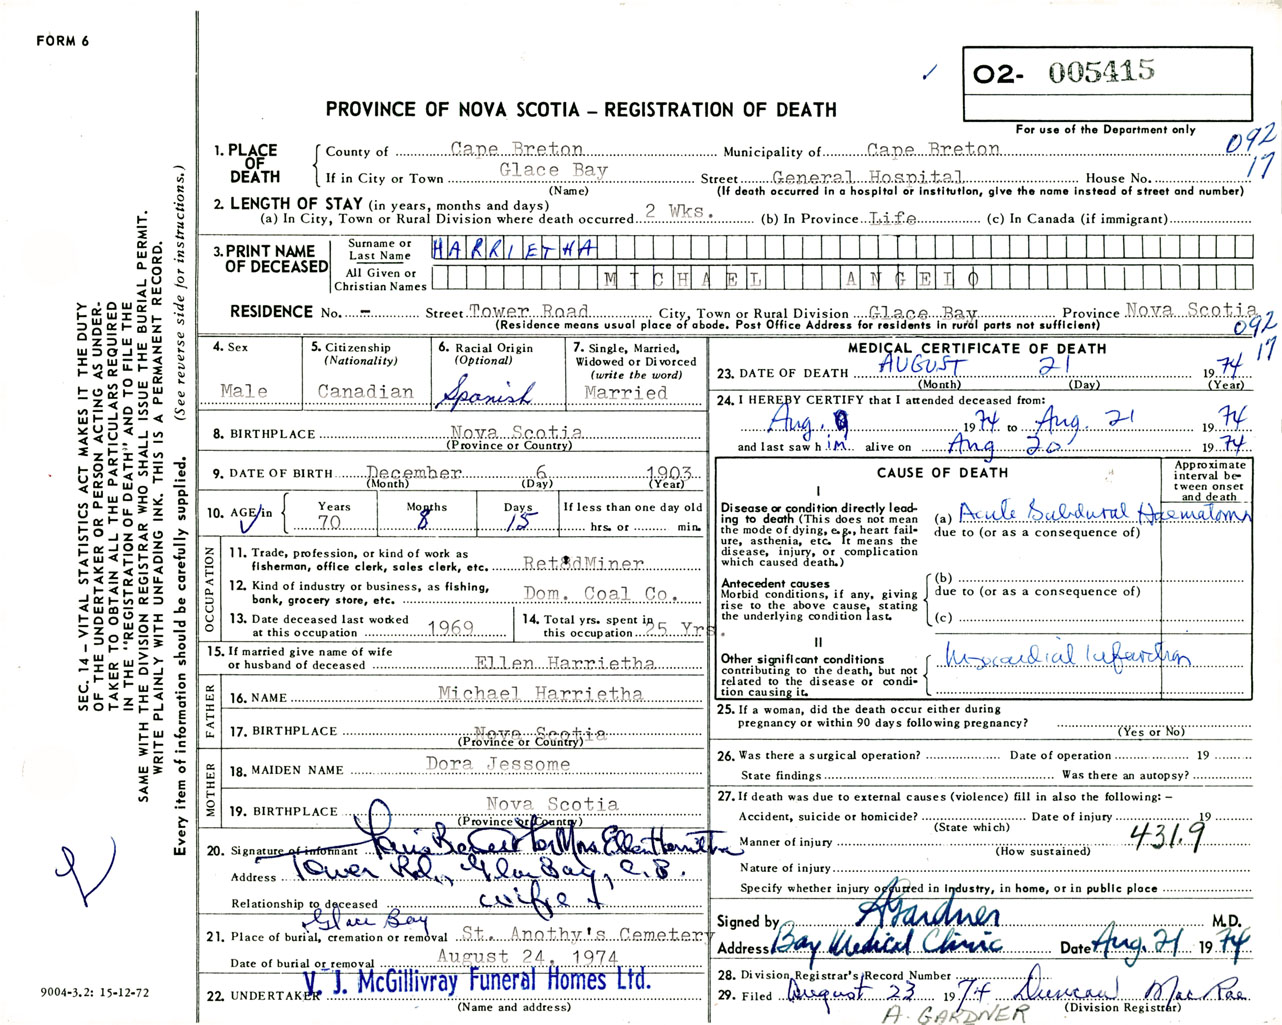 FORM 6
O2- 005415
PROVINCE OF NOVA SCOTIA – REGISTRATION OF DEATH
For use of the Department only
092
17
1. PLACE OF DEATH
County of Cape Breton Municipality of Cape Breton
If in City or Town Glace Bay Street General Hospital House No.
(Name) (If death occurred in a hospital or institution, give the name instead of street and number)
2. LENGTH OF STAY (in years, months and days)
(a) In City, Town or Rural Division where death occurred 2 Wks. (b) In Province Life (c) In Canada (if immigrant)
3. PRINT NAME OF DECEASED
Surname or Last Name HARRIETHA
All Given or Christian Names MICHAEL ANGELO
RESIDENCE No. – Street Tower Road City, Town or Rural Division Glace Bay Province Nova Scotia
(Residence means usual place of abode. Post Office Address for residents in rural parts not sufficient)
092
17
4. Sex
Male
5. Citizenship
(Nationality)
Canadian
6. Racial Origin
(Optional)
Spanish
7. Single, Married,
Widowed or Divorced
(write the word)
Married
8. BIRTHPLACE Nova Scotia
(Province or Country)
9. DATE OF BIRTH December 6 1903
(Month) (Day) (Year)
10. AGE in
Years Months Days If less than one day old
70 8 15 hrs. or min.
OCCUPATION
11. Trade, profession, or kind of work as
fisherman, office clerk, sales clerk, etc. Ret'd Miner
12. Kind of industry or business, as fishing,
bank, grocery store, etc. Dom. Coal Co.
13. Date deceased last worked
at this occupation 1969
14. Total yrs. spent in
this occupation 25 Yrs.
15. If married give name of wife
or husband of deceased Ellen Harrietha
FATHER
16. NAME Michael Harrietha
17. BIRTHPLACE Nova Scotia
(Province or Country)
MOTHER
18. MAIDEN NAME Dora Jessome
19. BIRTHPLACE Nova Scotia
(Province or Country)
20. Signature of informant for Mrs Ellen Harrietha
Address Tower Rd., Glace Bay, C.B.
Relationship to deceased wife
Glace Bay
21. Place of burial, cremation or removal St. Anothy's Cemetery
Date of burial or removal August 24, 1974
22. UNDERTAKER V. J. McGillivray Funeral Homes Ltd.
(Name and address)
MEDICAL CERTIFICATE OF DEATH
23. DATE OF DEATH AUGUST 21 1974
(Month) (Day) (Year)
24. I HEREBY CERTIFY that I attended deceased from:
Aug. 9 1974 to Aug. 21 1974
and last saw him alive on Aug 20 1974
CAUSE OF DEATH
Approximate
interval be-
tween onset
and death
I
Disease or condition directly lead-
ing to death (This does not mean
the mode of dying, e.g., heart fail-
ure, asthenia, etc. It means the
disease, injury, or complication
which caused death.)
(a) Acute Subdural Haematoma
due to (or as a consequence of)
Antecedent causes
Morbid conditions, if any, giving
rise to the above cause, stating
the underlying condition last.
(b)
due to (or as a consequence of)
(c)
II
Other significant conditions
contributing to the death, but not
related to the disease or condi-
tion causing it.
Myocardial Infarction
25. If a woman, did the death occur either during
pregnancy or within 90 days following pregnancy?
(Yes or No)
26. Was there a surgical operation? Date of operation 19
State findings Was there an autopsy?
27. If death was due to external causes (violence) fill in also the following: –
Accident, suicide or homicide? Date of injury 19
(State which)
Manner of injury 431.9
(How sustained)
Nature of injury
Specify whether injury occurred in Industry, in home, or in public place
Signed by A Gardner M.D.
Address Bay Medical Clinic Date Aug. 21 1974
28. Division Registrar's Record Number
29. Filed August 23 1974 Duncan MacRae
(Division Registrar)
A. GARDNER
SEC. 14 – VITAL STATISTICS ACT MAKES IT THE DUTY
OF THE UNDERTAKER OR PERSON ACTING AS UNDER-
TAKER TO OBTAIN ALL THE PARTICULARS REQUIRED
IN THE "REGISTRATION OF DEATH" AND TO FILE THE
SAME WITH THE DIVISION REGISTRAR WHO SHALL ISSUE THE BURIAL PERMIT.
WRITE PLAINLY WITH UNFADING INK. THIS IS A PERMANENT RECORD.
Every item of information should be carefully supplied. (See reverse side for instructions.)
9004-3.2: 15-12-72